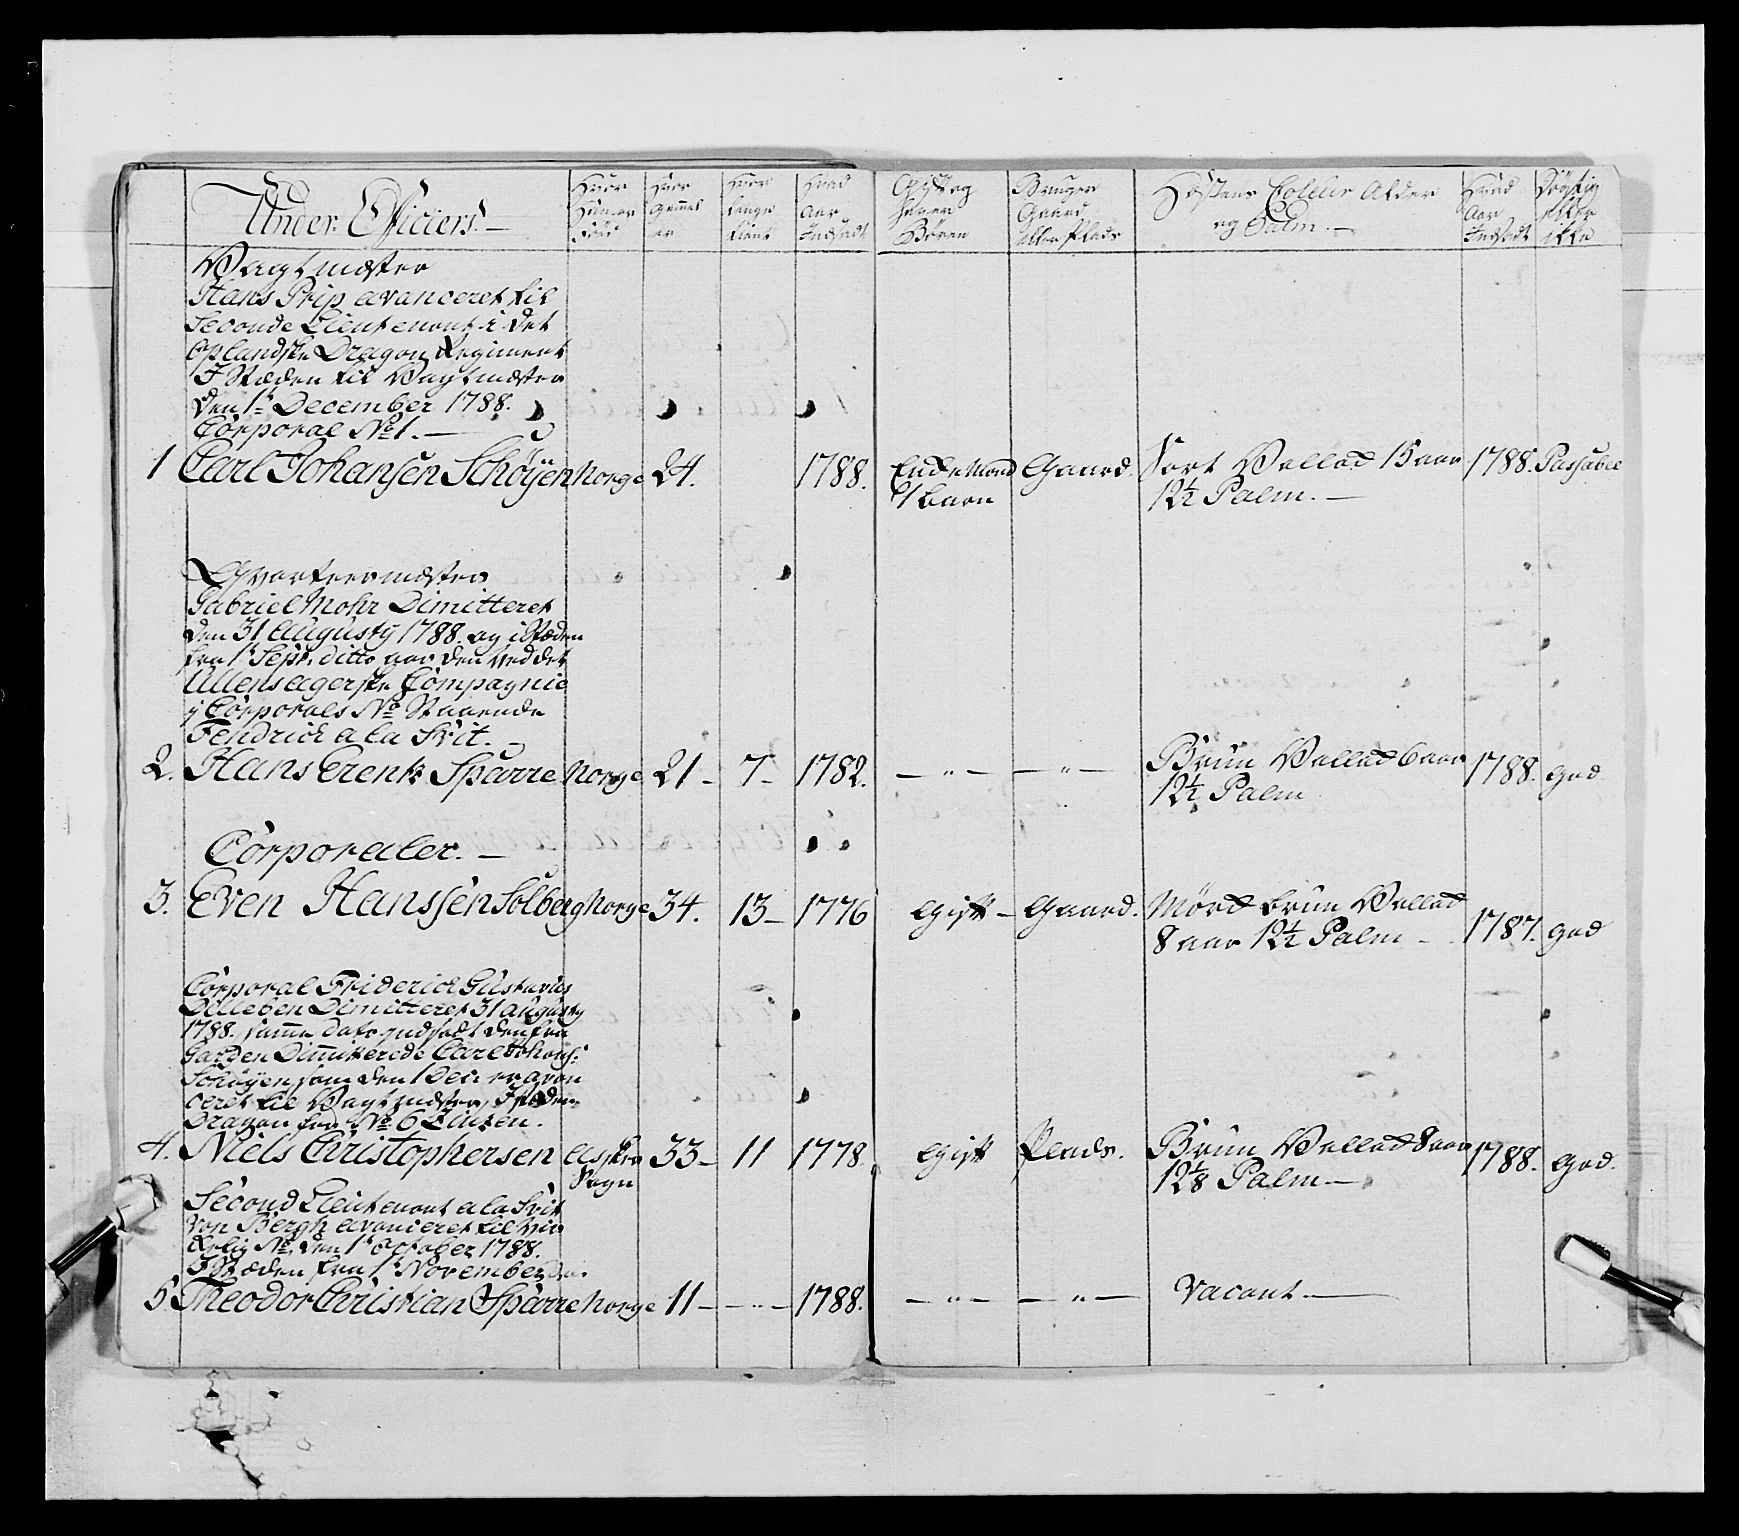 Under Officiers. —
Hvor Hand er Fød
Hvor gammel er
Hvor lenge tient
Hvad Aar Indsadt
Gift og haver Børen
Bruger Gaard eller Plads
Hæstens Coleur Alder og Palm. —
Hvad Aar Indsadt
Dygtig eller ikke
Vagtmæster
Hans Prip avanceret til
Seconde Lieutenant i det
Oplandske Dragon Regiment
I Stæden til Vagtmæster
den 1te December 1788.
Corporal No 1. —
1 Carl Johansen Schøyen Norge 24. 1788. Enckemand 1/ barn Gaard. Sort Vallad 15 aar 12½ Palm. — 1788. Passabel
Qvarteermæster
Gabriel Mohr Dimitteret
den 31 Augusty 1788. og i Stæden
fra 1te Sept. ditto aar den ved det
Ullensagerske Compagnie
j Corporals No Staaende
Fendrich a la Svit. —
2. Hans Erenk Sparre Norge 21 — 7 — 1782. — " — — " — Brun Vallad 6 aar 12½ Palm 1788. god
Corporaler. —
3. Even Hanssen Solberg Norge 34. 13 — 1776 Gift — Gaard. Mørck brun Vallad 8 aar 12½ Palm — 1787. god
Corporal Friderich Gustavus
Dilleben Dimitteret 31 Augusty
1788. samme dato indsadt den fra
Garden Dimitterede Carl Johans:
Schøyen som den 1 Dec: er avan
ceret til Vagtmæster, I Stæden
Dragon fra No 6
4. Niels Christophersen Asker Sogn 33 — 11 1778 Gift Plads. Brun Vallad 8 aar 12⅛ Palm — 1788. god.
Second Lieutenant a la Svit
von Bergh avanceret til Vir
kelig No. den 1te October 1788.
I Stæden fra 1te November
5 Theodor Christian Sparre Norge 11 — — " — 1788. — " — — " — Vacant. —